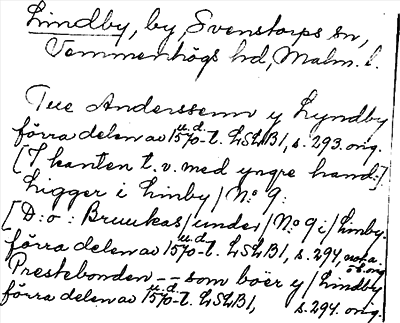 Lindby, by, Svenstorps sn,
Vemmenhögs hd, Malm. l.
Tue Anderssenn y Lyndby
förra delen av 1570-t. LSLB1, s. 293. orig.
u. d.
[I kanten t. v. med yngre hand:]
Ligger i Linby / No 9:
[D:o: Bruukas/under/No 9 i/Linby.
förra delen av 1570-t. LSLB1, s. 294,
u. d.
Prestebonden -- som boer y / Lindby
förra delen av 1570-t. LSLB1, s. 294. orig.
u. d.